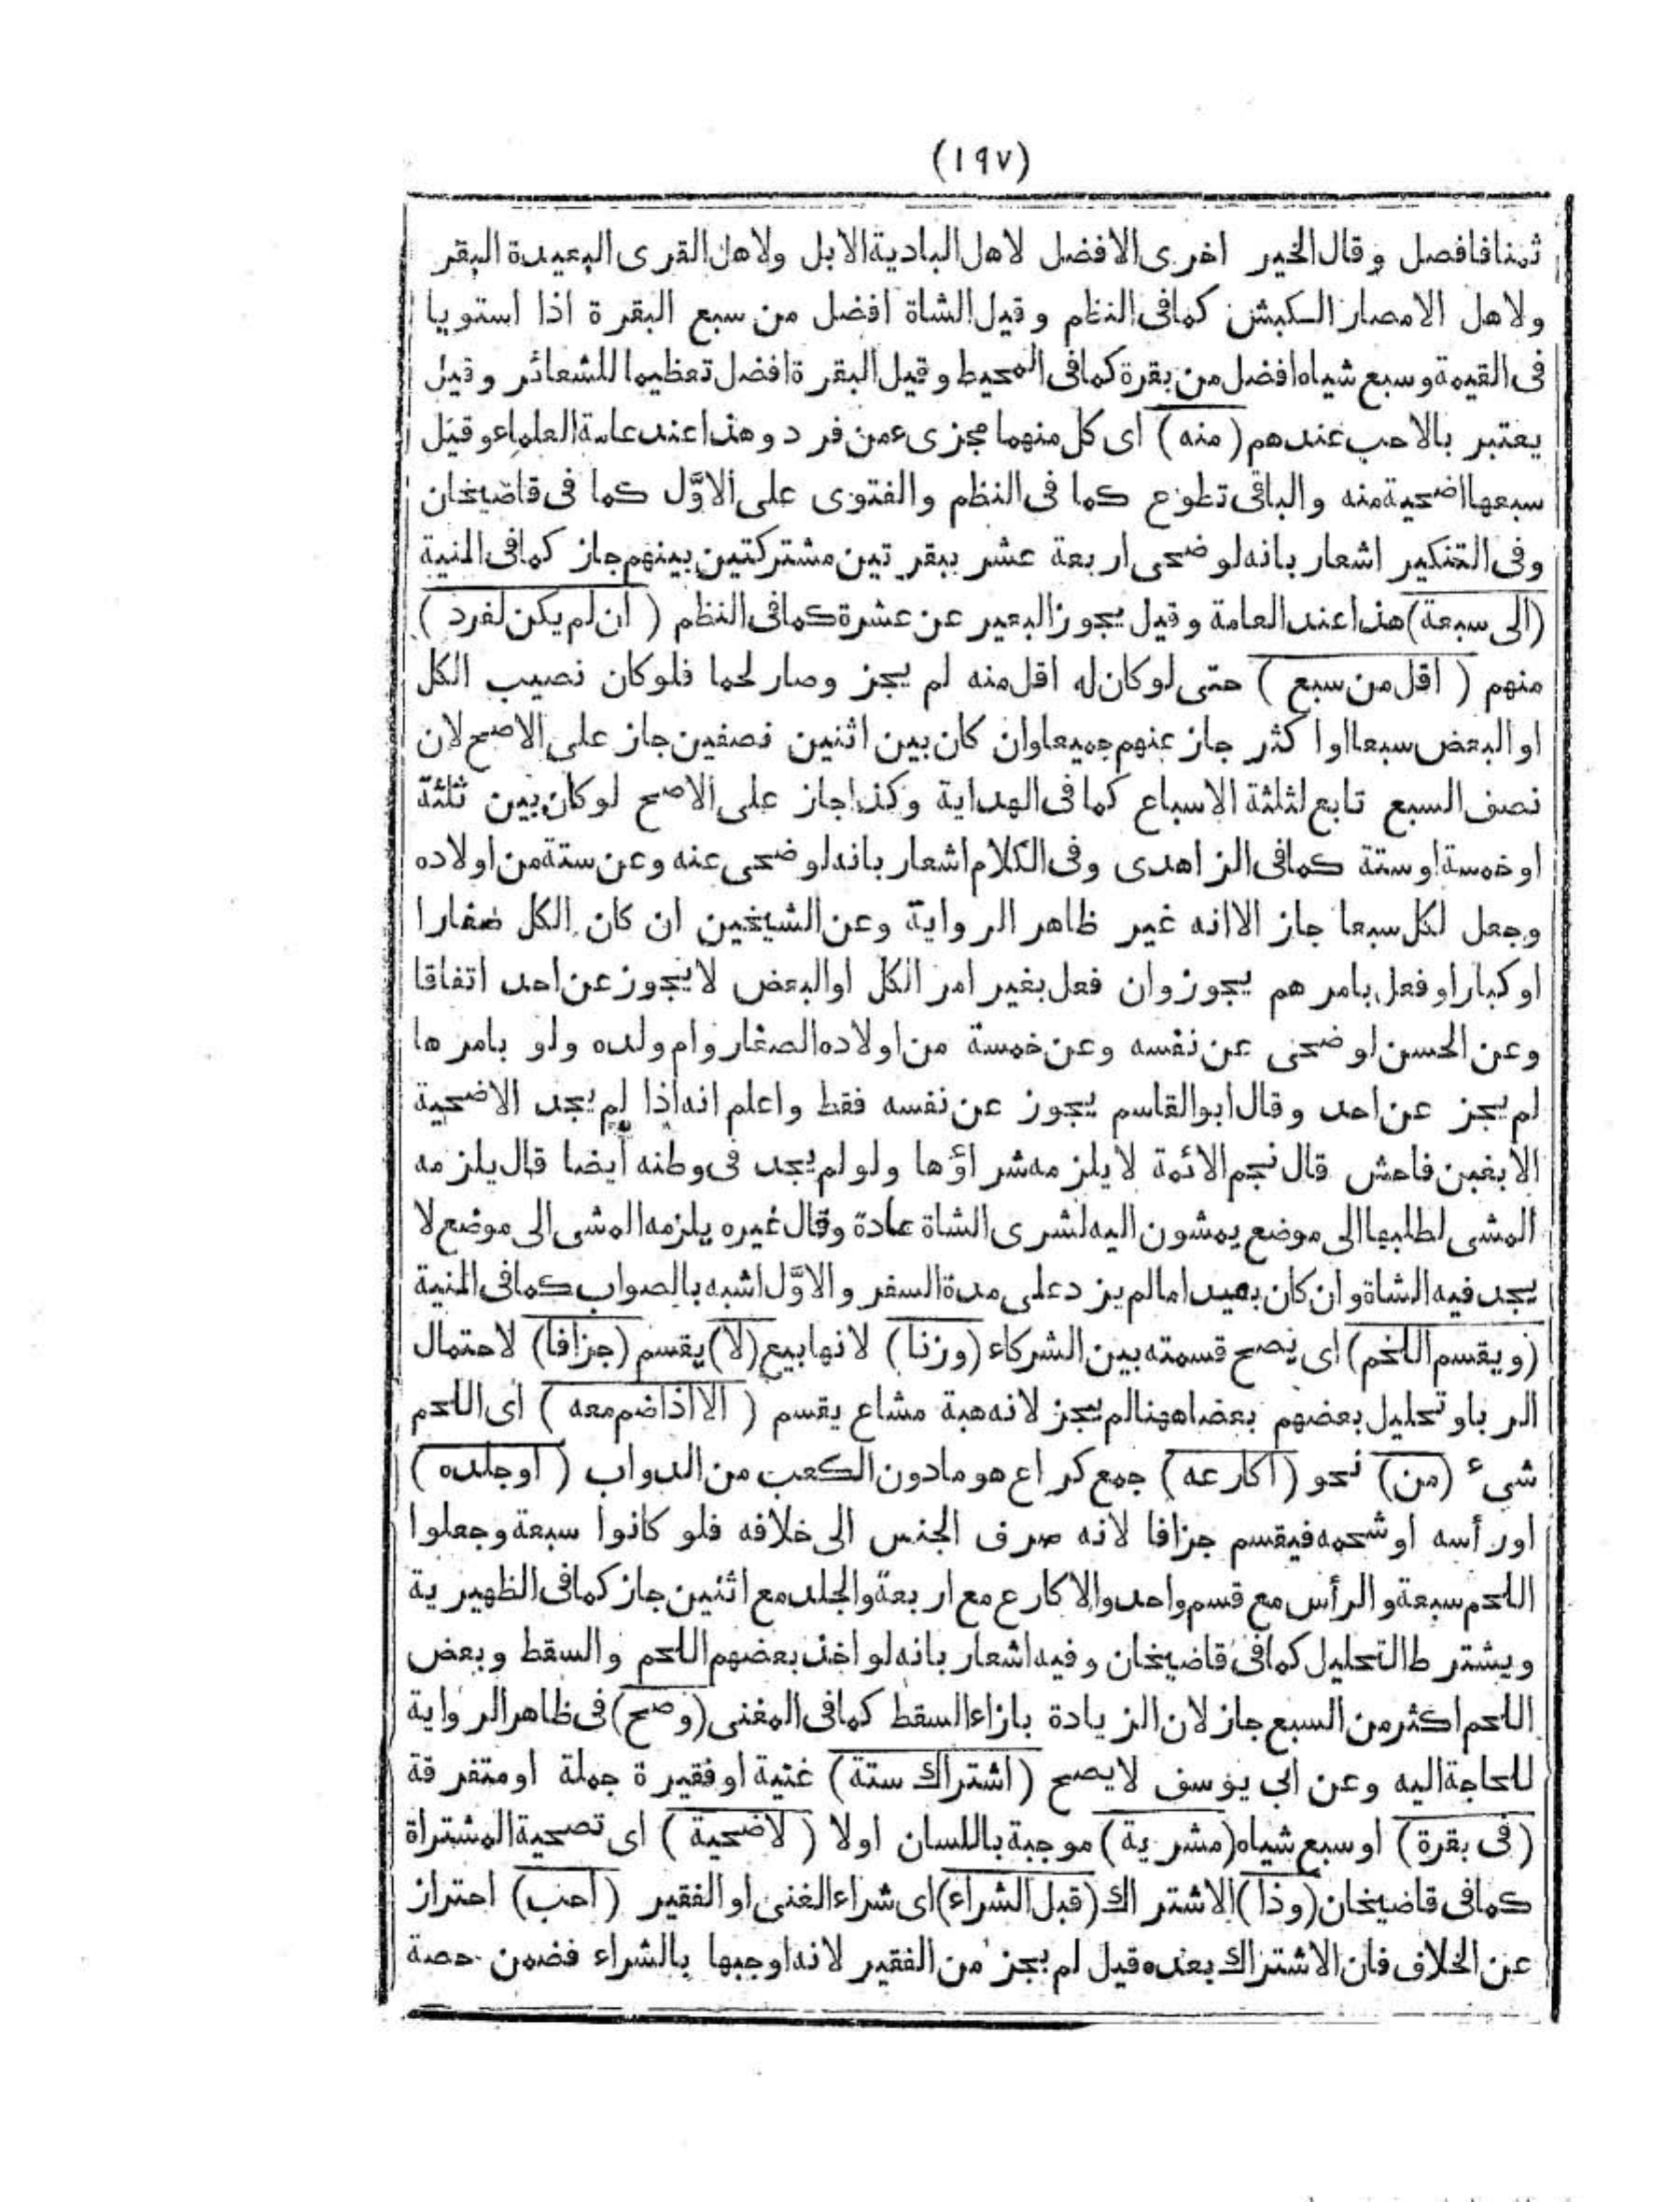 (١٩٧)
ثمنا فافضل وقال الخير اخرى الافضل لاهل البادية الابل ولاهل القرى البعيدة البقر
ولاهل الامصار الكبش كما فى النظم وقيل الشاة افضل من سبع البقرة اذا استويا
فى القيمة وسبع شياه افضل من بقرة كما فى المحيط وقيل البقرة افضل تعظيما للشعائر وقيل
يعتبر بالاحب عندهم (منه) اى كل منهما مجزىء من فرد وهذا عند عامة العلماء وقيل
سبعها اضحية منه والباقى تطوع كما فى النظم والفتوى على الاوّل كما فى قاضيخان
وفى التنكير اشعار بانه لو ضحى اربعة عشر ببقرتين مشتركتين بينهم جاز كما فى المنية
(الى سبعة) هذا عند العامة وقيل يجوز البعير عن عشرة كما فى النظم (ان لم يكن لفرد)
منهم (اقل من سبع) حتى لو كان له اقل منه لم يجز وصار لحما فلو كان نصيب الكل
او البعض سبعا او اكثر جاز عنهم جميعا وان كان بين اثنين نصفين جاز على الاصح لان
نصف السبع تابع لثلثة الاسباع كما فى الهداية وكذا جاز على الاصح لو كان بين ثلثة
او خمسة او ستة كما فى الزاهدى وفى الكلام اشعار بانه لو ضحى عنه وعن ستة من اولاده
وجعل لكل سبعا جاز الا انه غير ظاهر الرواية وعن الشيخين ان كان الكل صغارا
او كبارا وفعل بامرهم يجوز وان فعل بغير امر الكل او البعض لا يجوز عن احد اتفاقا
وعن الحسن لو ضحى عن نفسه وعن خمسة من اولاده الصغار وام ولده ولو بامرها
لم يجز عن احد وقال ابو القاسم يجوز عن نفسه فقط واعلم انه اذا لم يجد الاضحية
الا بغبن فاحش قال نجم الائمة لا يلزمه شراؤها ولو لم يجد فى وطنه أيضا قال يلزمه
المشى لطلبها الى موضع يمشون اليه لشرى الشاة عادة وقال غيره يلزمه المشى الى موضع لا
يجد فيه الشاة وان كان بعيدا ما لم يزد على مدة السفر والاوّل اشبه بالصواب كما فى المنية
(ويقسم اللحم) اى يصح قسمته بين الشركاء (وزنا) لانها بيع (لا) يقسم (جزافا) لاحتمال
الربا وتحليل بعضهم بعضا ههنا لم يجز لانه هبة مشاع يقسم (الا اذا ضم معه) اى اللحم
شىء (من) نحو (اكارعه) جمع كراع هو ما دون الكعب من الدواب (او جلده)
او رأسه او شحمه فيقسم جزافا لانه صرف الجنس الى خلافه فلو كانوا سبعة وجعلوا
اللحم سبعة والرأس مع قسم واحد والاكارع مع اربعة والجلد مع اثنين جاز كما فى الظهيرية
ويشترط التحليل كما فى قاضيخان وفيه اشعار بانه لو اخذ بعضهم اللحم والسقط وبعض
اللحم اكثر من السبع جاز لان الزيادة بازاء السقط كما فى المغنى (وصح) فى ظاهر الرواية
للحاجة اليه وعن ابى يوسف لا يصح (اشتراك ستة) غنية او فقيرة جملة او متفرقة
(فى بقرة) او سبع شياه (مشرية) موجبة باللسان اولا (لاضحية) اى تضحية المشتراة
كما فى قاضيخان (وذا) الاشتراك (قبل الشراء) اى شراء الغنى او الفقير (احب) احتراز
عن الخلاف فان الاشتراك بعده قيل لم يجز من الفقير لانه اوجبها بالشراء فضمن حصة